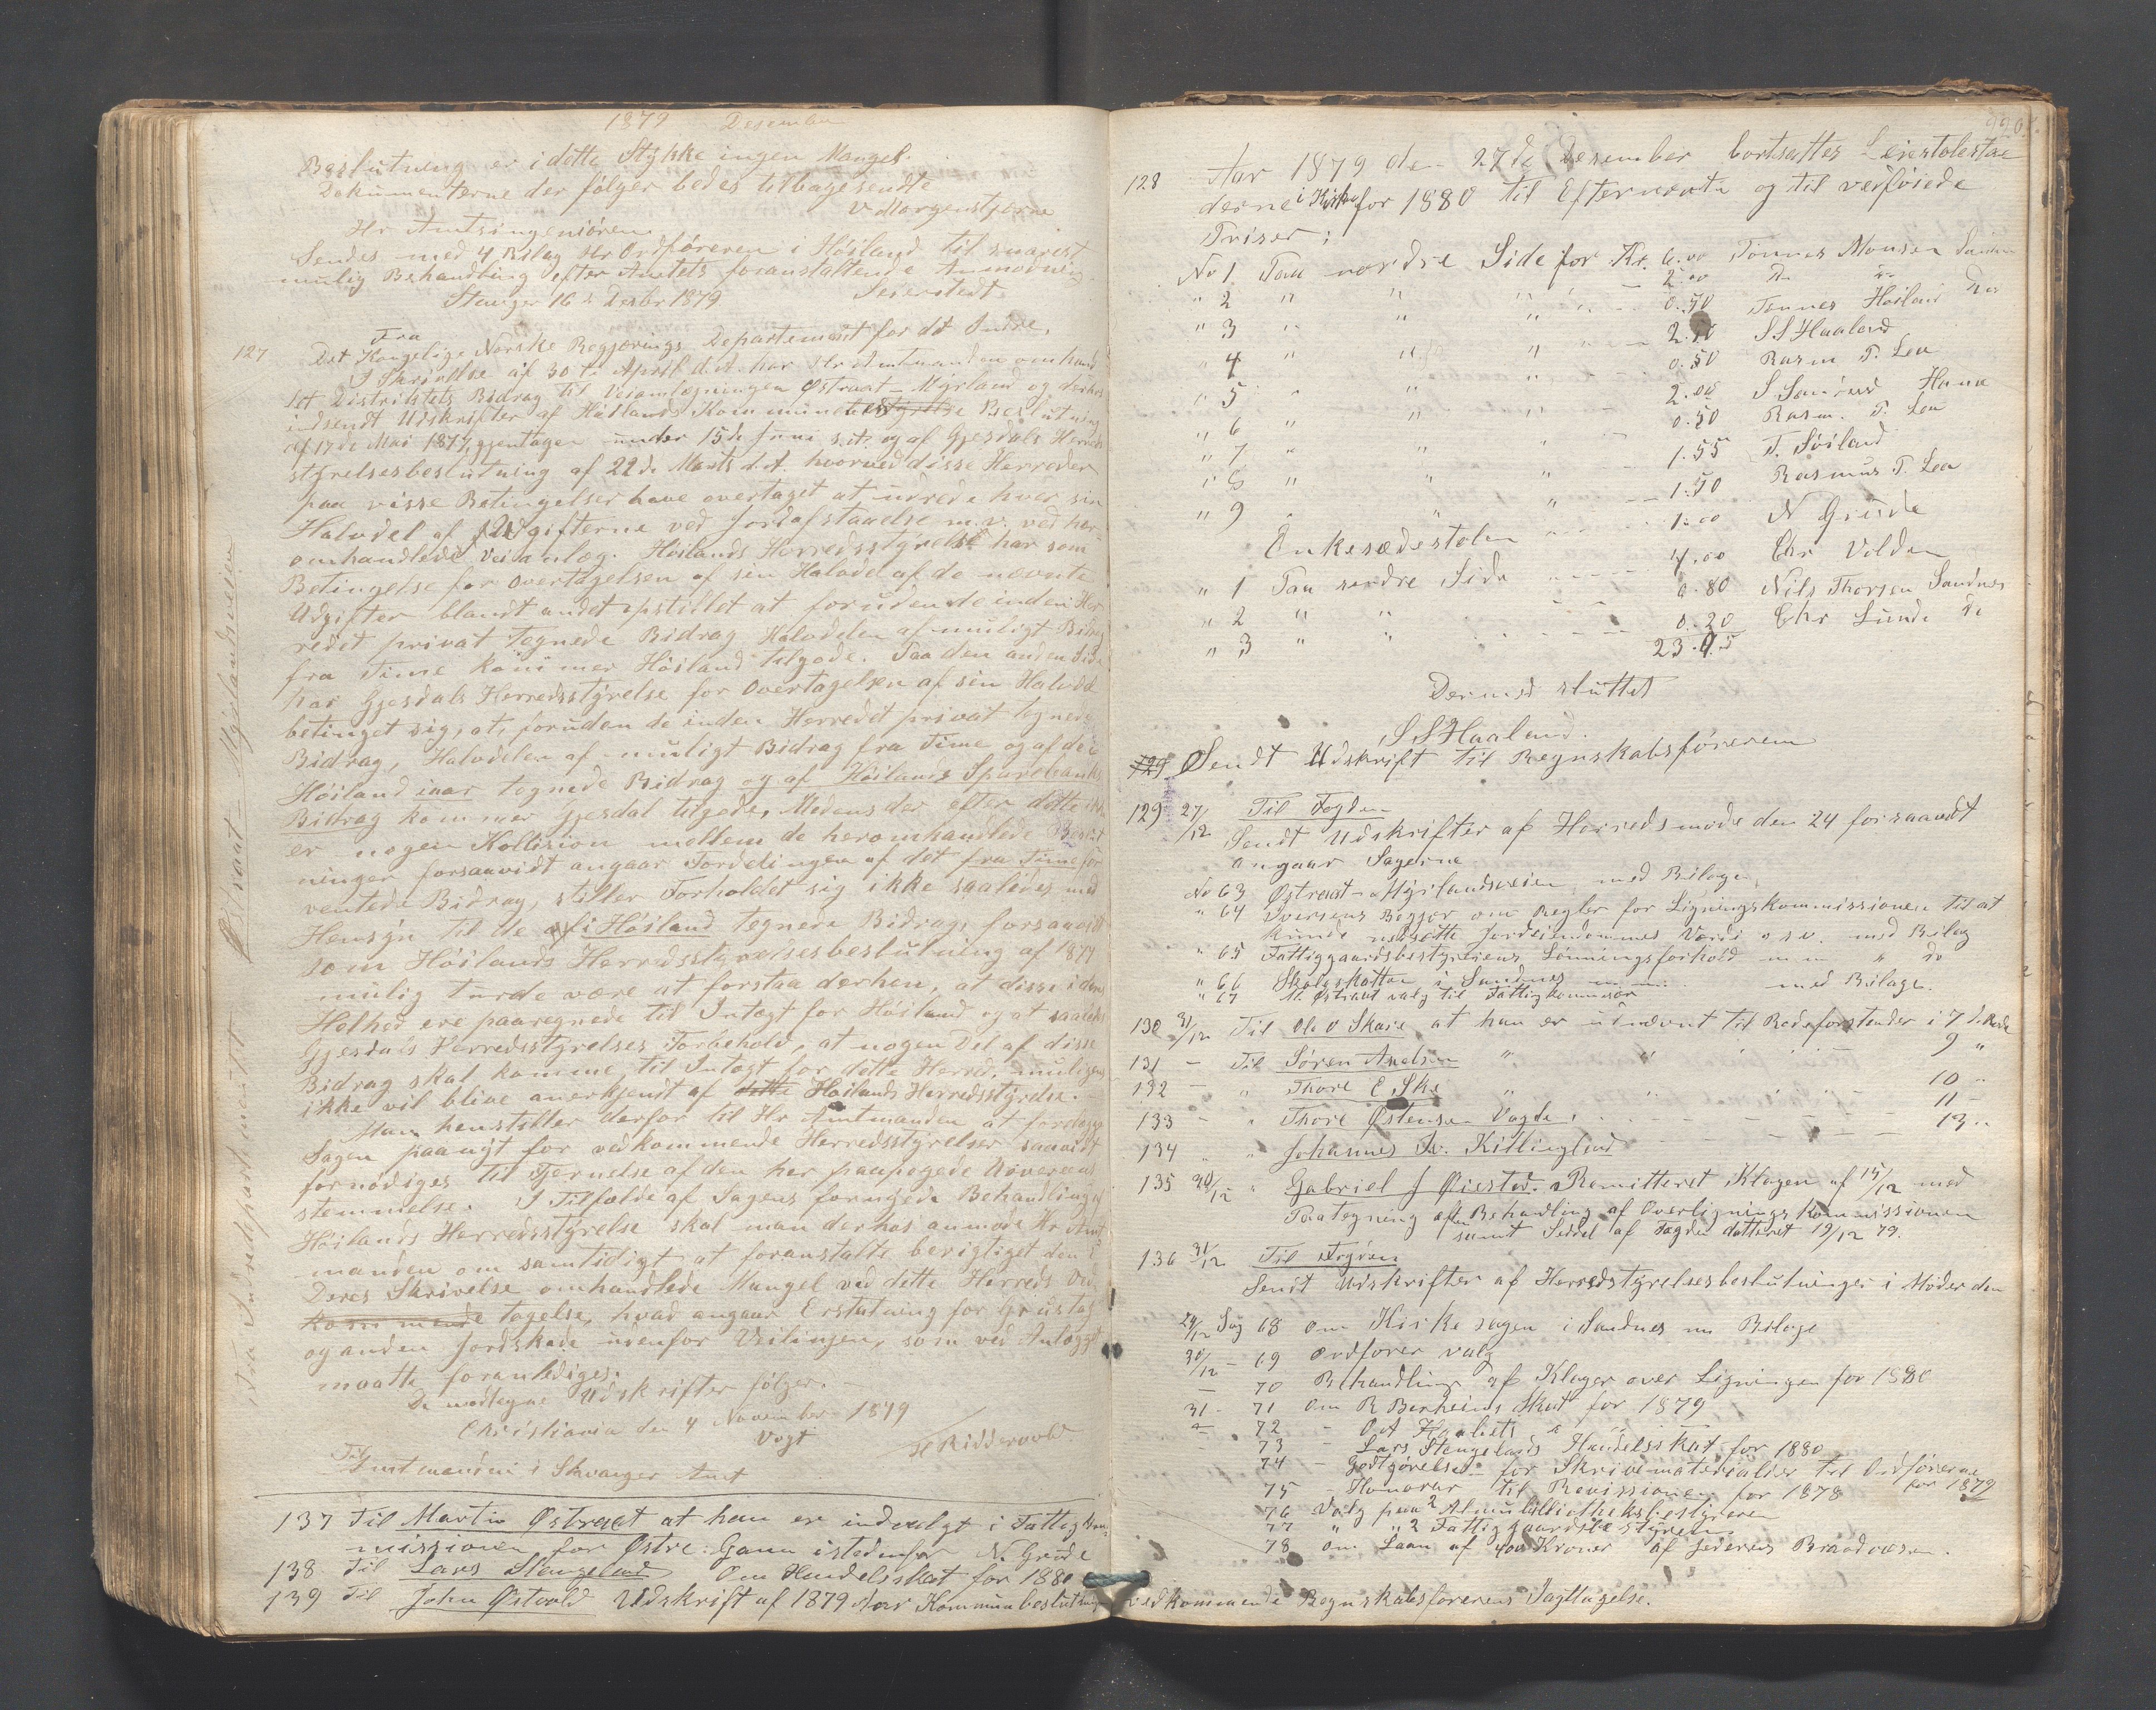 1879 Desember
Beslutning er i dette Stykke ingen Mangel.
Dokumenterne der følger bedes tilbagesendte
v Morgenstjerne
Hr Amtsingeniören
Sendes med 4 Bilag Hr Ordföreren i Höiland til snarest
mulig Behandling efter Amtets foranstaltende Anmodning.
Stavger 16 Desbr 1879 Seierstedt
Fra
127 Det Kongelige Norske Regjerings Departement for det Indre.
I Skrivelse af 30 te April d.A. har Hr Amtmanden omhand
let Distriktets Bidrag til Veiomlægningen Østraat - Myrland og derhos
indsendt Udskrifter af Höilands Kommunebestyrelse Beslutning
af 17 de Mai 1877, gjentagen under 15de Juni s.A. og af Gjesdals Herreds
styrelsesbeslutning af 22 de Marts d.A. hvorved disse Herreder
paa visse Betingelser have overtaget at udrede hver sin
Halvdel af Udgifterne ved Jordafstaaelse m.v. ved her-
omhandlede Veianlæg. Höilands Herredsstyrelse har som
Betingelse for Overtagelsen af sin Halvdel af de nævnte
Udgifter blandt andet opstillet at foruden de inden Her
redet privat tegnede Bidrag Halvdelen af muligt Bidrag
fra Time kommer Höiland tilgode. Paa den anden Side
har Gjesdals Herredsstyrelse for Overtagelsen af sin Halvdel
betinget sig, at, foruden de inden Herredet privat tegnede
Bidrag, Halvdelen af muligt Bidrag fra Time og af de i
Höiland tegnede Bidrag og af Höilands Sparebanks
Bidrag kommer Gjesdal tilgode. Medens der efter dette ikke
er nogen Kollision mellem de heromhandlede Beslut
ninger forsaavidt angaar Fordelingen af det fra Time for
ventede Bidrag, stiller Forholdet sig ikke saaledes med
Hensyn til de i Höiland tegnede Bidrag, forsaavidt
som Höilands Herredsstyrelsesbeslutning af 1877
mulig turde være at forstaa derhen, at disse i deres
Helhed ere paaregnede til Indtægt for Höiland og at saaledes
Gjesdals Herredsstyrelses Forbehold, at nogen Del af disse
Bidrag skal komme til Indtægt for dette Herred, muligens
ikke vil blive anerkjendt af dette Höilands Herredsstyrelse.
Man henstiller derfor til Hr Amtmanden at forelægge
Sagen paanyt for vedkommende Herredsstyrelser saavidt
fornödiges til Fjernelse af den her paapegede Uoverens
stemmelse. I Tilfælde af Sagens fornyede Behandling af
Höilands Herredsstyrelse skal man derhos anmode Hr Amt
manden om samtidigt at foranstalte berigtiget den i
Deres Skrivelse omhandlede Mangel ved dette Herreds Ved
kommende tagelse, hvad angaar Erstatning for Grustag
og anden Jordskade udenfor Veilinjen, som ved Anlægget
maatte foranlediges.
De modtagne Udskrifter følger.
Christiania den 4 November 1879
Vogt
H Riddervold
Til
Amtmanden i Stavanger Amt
Fra Indredepartementet Østraat - Myrlandsveien
137 Til Martin Østraat at han er indvalgt i Fattigkom-
missionen for Østre: Gann istedenfor N. Grude
138 Til Lars Stangeland Om Handelsskat for 1880
139 Til John Østvold Udskrift af 1879 Aar Kommunebeslutninger vedkommende Regnskabsførerens Iagttagelse.
220
128 Aar 1879 den 27de Desember bortsattes Leiestolesta
derne i Kirke for 1880 til Efternævnte og til vedføiede
Priser:
No 1 Paa nordre Side for Kr. 6.00 Tønnes Monsen Sandnes
" 2 " " " — 2.00 do do
" 3 " " " 0.50 Tønnes Høiland do
" 4 " " " — 2.50 S S Haaland
" 5 " " 0.50 Rasm T. Lea
" 6 " " 2.00 S Sandved Hana
" 7 " " 0.50 Rasm. T. Lea
" 8 " " 1.55 T. Söiland
" 9 " " 1.50 Rasmus T. Lea
Enkesædestolen 1.00 N Grude
" 1 Paa søndre Side 4.00 Chr Volden
" 2 " " 0.80 Nils Thorsen Sandnes
" 3 " " 0.20 Chr Lunde do
23.05
Dermed sluttet
S S Haaland.
129 Sendt Udskrift til Regnskabsföreren
129 27/12 Til Fogden
Sendt Udskrifter af Herredsmøde den 24 forsaavidt
angaar Sagerne
No 63 Østraat - Myrlandsveien, med Bilage,
" 64 Iversens Begjær om Regler for Ligningskommissionen til at
kunde udsætte Jordeiendommes Værdi o.s.v. med Bilag
" 65 Fattiggaardsbestyrerens Lönningsforhold m m " do
" 66 Skoleskatten i Sandnes med Bilage.
" 67 M. Østraat valg til Fattigkommissær
130 31/12 Til Ole O Skaie at han er udnævnt til Rodeforstander i 7 de Rode
131 — Til Søren Axelsen " " 9 "
132 — " Thore E. Ske " " 10 "
133 — " Thore Østensen Vagle 11 —
134 " " Johannes Kitlingland 13 "
135 30/12 " Gabriel J Øiestad. Remitteret Klagen af 15/12 med
Paategning efter Behandling af Overligningskommissionen
samt Seddel af Fogden datteret 19/12 79.
136 31/12 Til Fogden
Sendt Udskrifter af Herredstyrelsesbeslutninger i Møder den
29/12 Sag 68 om Kirkesagen i Sandnes m Bilage
30/12 — 69 Ordfører valg
— 70 Behandling af Klager over Ligningen for 1880
31 - 71 Om R Berheims Skat for 1879
72 - O A
73 - Lars Stangelands Handelsskat for 1880
74 - Godtgörelse for Skrivematerialier til Ordføreren
for 1879
75 - Honorar til Revissionen for 1878
76 Valg paa 2 Almubibliotheksbestyrere
77 " " 2 Fattiggaardsbestyrere.
78 om Laan af 400 Kroner af Jederens Brandvæsen.